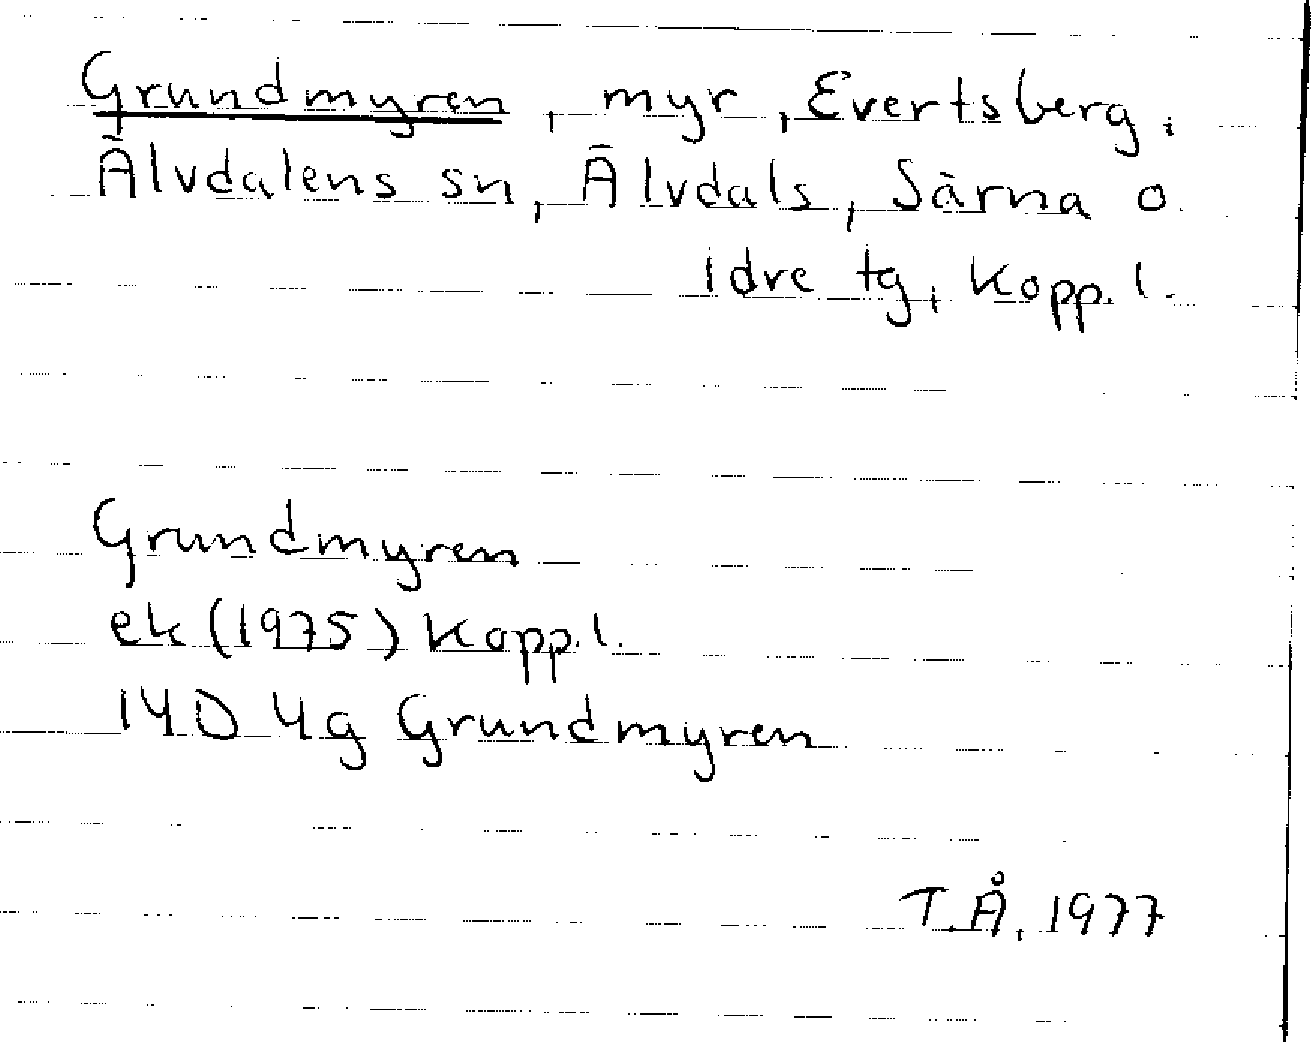 Grundmyren, myr, Evertsberg,
Älvdalens sn, Älvdals, Särna o
Idre tg, Kopp. l.
Grundmyren
ek (1975) Kopp. l.
14D 4g Grundmyren
T.Å, 1977